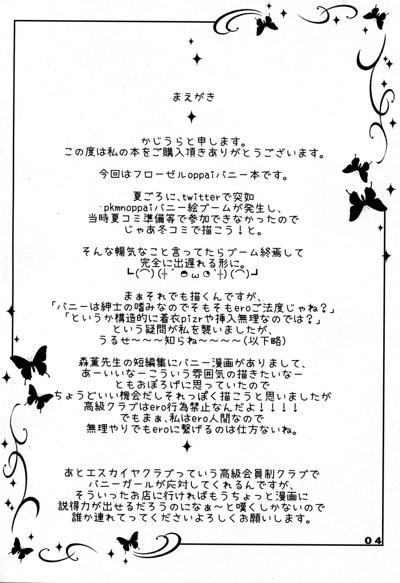 まえがき
かじうらと申します。
この度は私の本をご購入頂きありがとうございます。
今回はフローゼルoppaiバニー本です。
夏ごろに、twitterで突如
pkmnoppaiバニー絵ブームが発生し、
当時夏コミ準備等で参加できなかったので
じゃあ冬コミで描こう!と。
そんな暢気なこと言ってたらブーム終焉して
完全に出遅れる形に。
┗(⌒)(╬´◓ω◔`╬)(⌒)┛
まぁそれでも描くんですが、
「バニーは紳士の嗜みなのでそもそもeroご法度じゃね?」
「というか構造的に着衣pizrや挿入無理なのでは?」
という疑問が私を襲いましたが、
うるせ~~~~知らね~~~~(以下略)
森薫先生の短編集にバニー漫画がありまして、
あーいいなーこういう雰囲気の描きたいなー
ともおぼろげに思っていたので
ちょうどいい機会だしそれっぽく描こうと思いましたが
高級クラブはero行為禁止なんだよ!!!!
でもまぁ、私はero人間なので
無理やりでもeroに繋げるのは仕方ないね。
あとエスカイヤクラブっていう高級会員制クラブで
バニーガールが応対してくれるんですが、
そういったお店に行ければもうちょっと漫画に
説得力が出せるだろうのになぁ~と嘆くしかないので
誰か連れてってくださいよろしくお願いします。
04